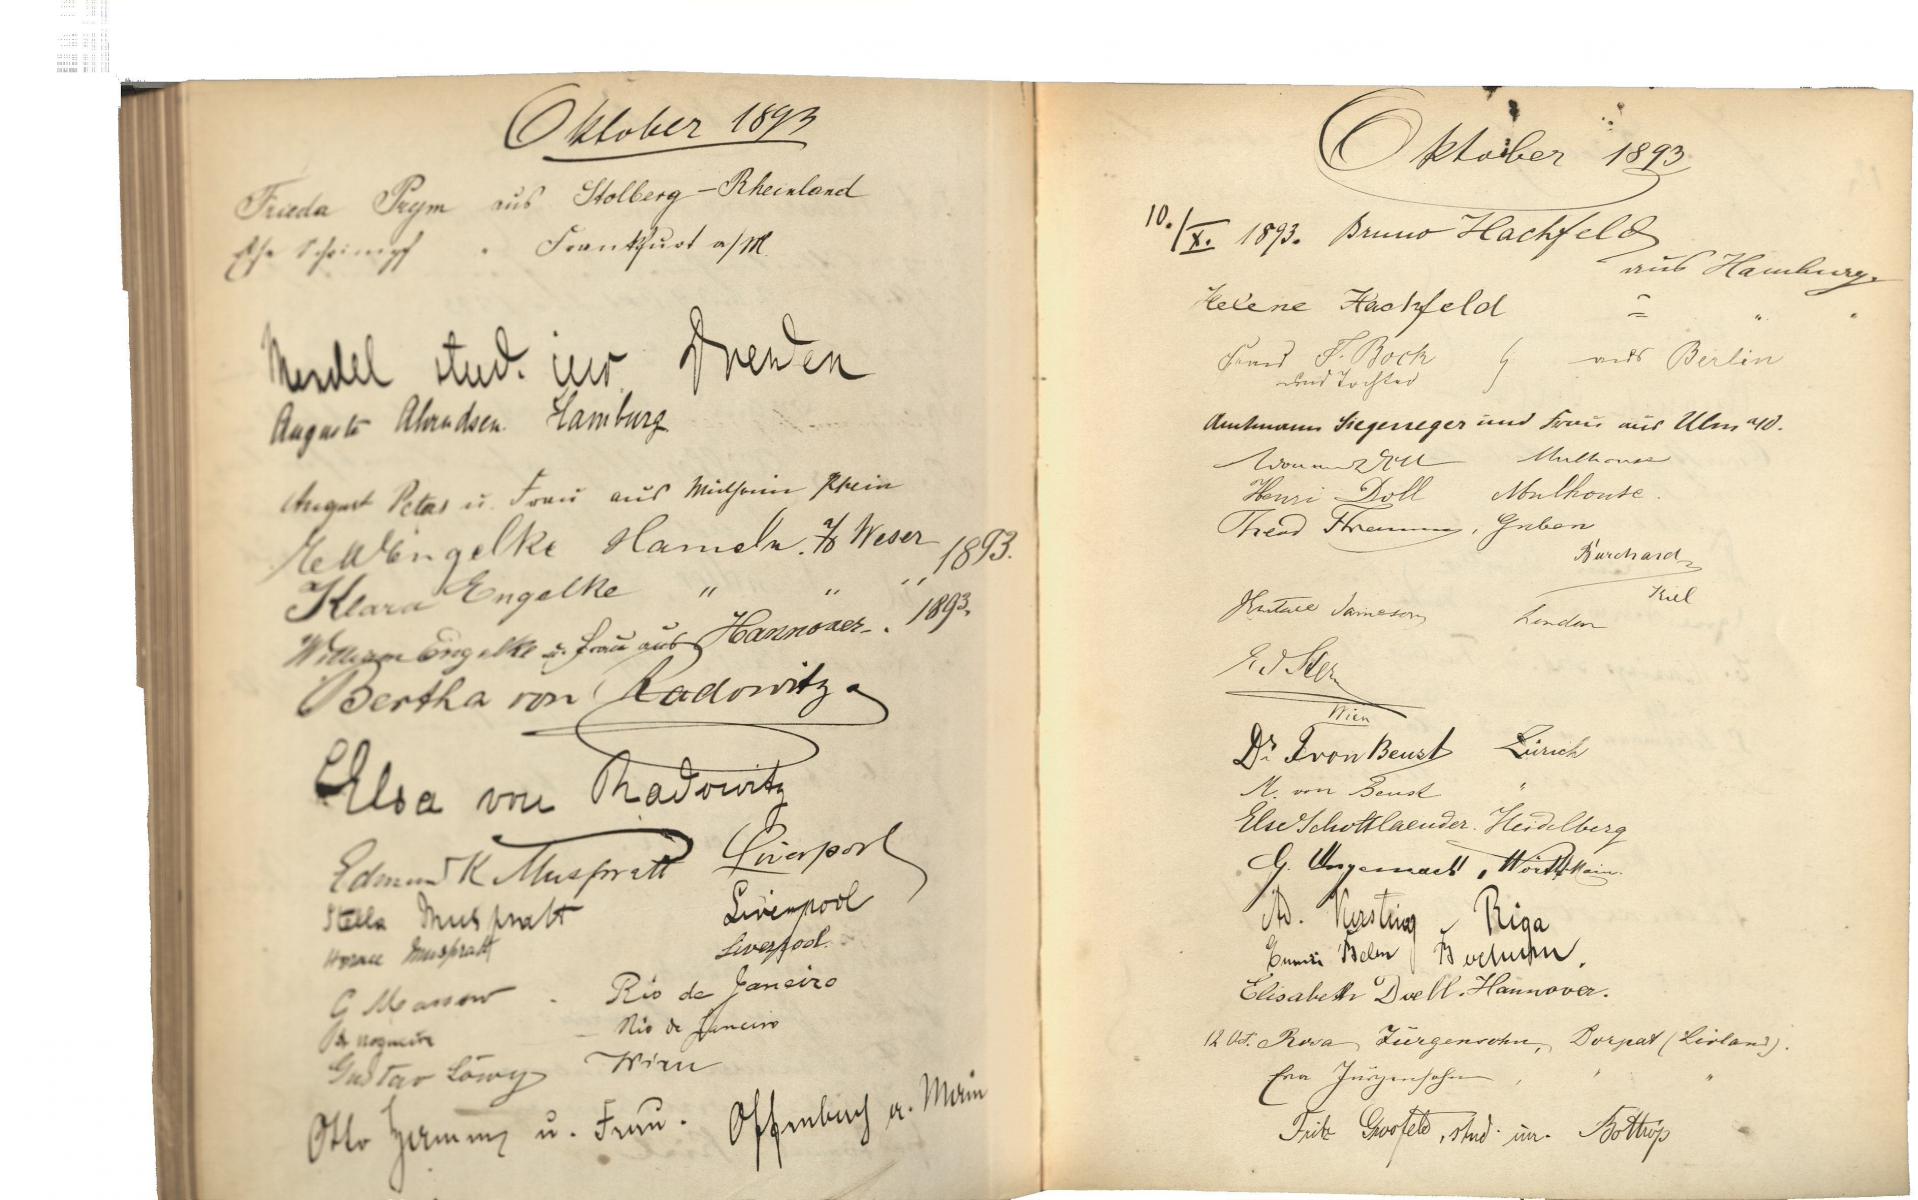 Oktober 1893
Frieda Prym aus Stolberg-Rheinland
Schrimpf " Frankfurt a/M.
Mendel stud. iur. Dresden
Auguste Ahrendsen. Hamburg
August Peters u. Frau aus Mülheim Rhein
Engelke Hameln. a/d Weser 1893.
Klara Engelke " " " 1893.
William Engelke u. Frau aus Hannover.
Bertha von Radowitz.
Elsa von Radowitz
Edmund K Muspratt Liverpool
Stella Muspratt Liverpool
Horace Muspratt Liverpool.
G Massow - Rio de Janeiro
Nogueira - Rio de Janeiro
Gustav Löwy Wien
Otto u. Frau. Offenbach a. Main
Oktober 1893
10./X. 1893. Bruno Hachfeld
aus Hamburg.
Helene Hachfeld = " "
Frau F. Bock aus Berlin
und Tochter
Amtmann und Frau aus Ulm a/D.
Mulhouse
Henri Doll Mulhouse.
Guben
Burchard
Kiel
Jameson London
Stern
Wien
Dr. F von Beust Zürich
M. von Beust "
Else Schottlaender. Heidelberg
G. Ungemach, Wörth Main.
Ad. Kersting Riga
Bochum.
Elisabeth Doell. Hannover.
12 Oct. Rosa Jürgensohn, Dorpat (Livland).
Eva Jürgensohn, " "
Fritz stud. iur. Bottrop